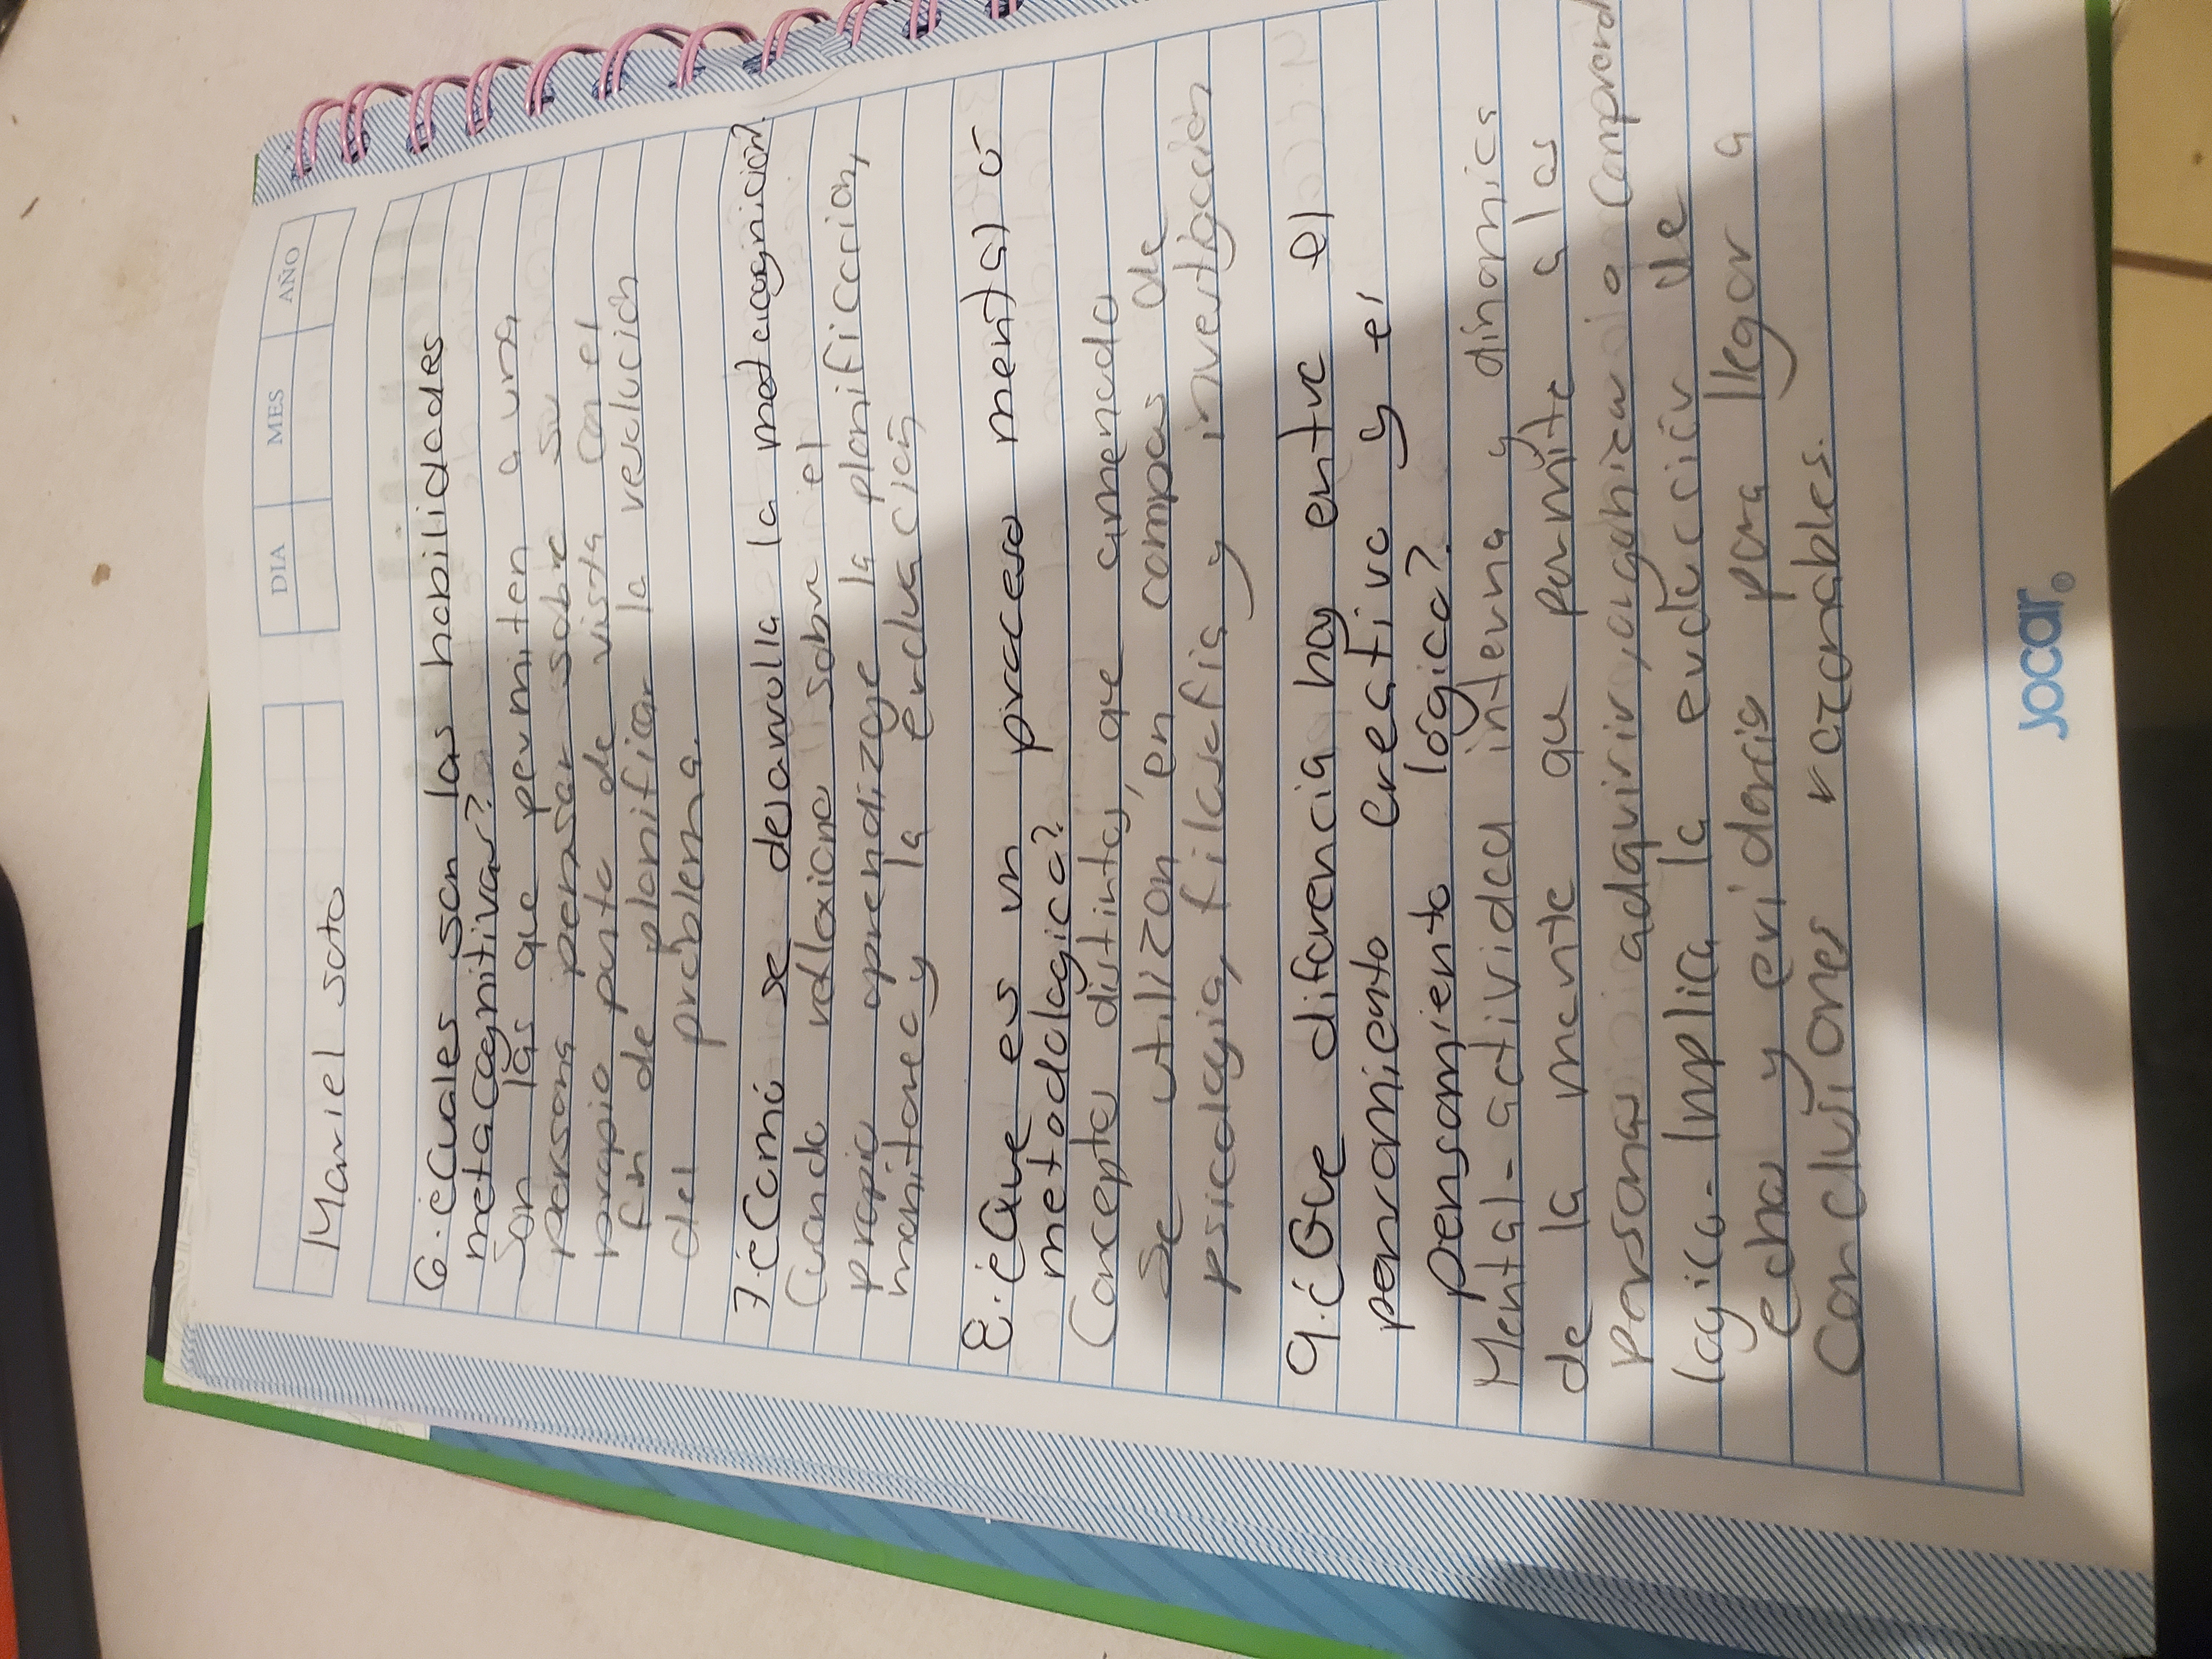 DIA MES AÑO
Mariel soto
6. ¿Cuales son las habilidades
metacognitivas?
Son las que permiten a una
persona pensar sobre su
propio punto de vista con el
fin de planificar la resolución
del problema.
7. ¿Comó se desarrolla la metacognición?
Cuando reflexiono sobre el
propio aprendizaje la planificación,
monitoreo y la evaluación
8. ¿Que es un proceso mental ó
metodologico?
Conceptos distintos, que amenudo
se utilizan en campos de
psicología, filosofia y investigación
9. ¿Que diferencia hay entre el
pensamiento creativo y el
pensamiento lógico?
Mental - actividad interna y dinamica
de la mente que permite a las
personas adquirir, organizar o
logico - Implica la de
echos y evidencia para llegar a
conclusiones razonables.
Jocar®